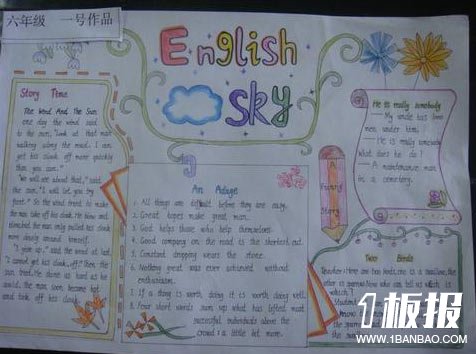 六年级 一号作品
English
Sky
Story Time
The Wind And The Sun
one day the wind said
to the sun, "Look at that man
walking along the road. I can
get his cloak off more quickly
than you can."
"We will see about that," said
the sun. "I will let you try
first." So the wind tried to make
the man take off his cloak. He blew and
blew, but the man only pulled his cloak
more closely around himself.
"I give up," said the wind at last.
"I cannot get his cloak off." Then the
sun tried. He shone as hard as he
could. The man soon became hot
and took off his cloak.
An Adage
1. All things are difficult before they are easy.
2. Great hopes make great man.
3. God helps those who help themselves.
4. Good company on the road is the shortest cut.
5. Constant dripping wears the stone.
6. Nothing great was ever achieved without
enthusiasm.
7. If a thing is worth doing it is worth doing well.
8. Four short words sum up what has lifted most
successful individuals above the
crowd: a little bit more.
A
Funny
Story
He is really somebody
— My uncle has 1000
men under him.
— He is really somebody.
What does he do?
— A maintenance man
in a cemetery.
Two Birds
Teacher: Here are two birds, one is a swallow, the
other is sparrow. Now who can tell us which is
which?
1板报
WWW.1BANBAO.COM